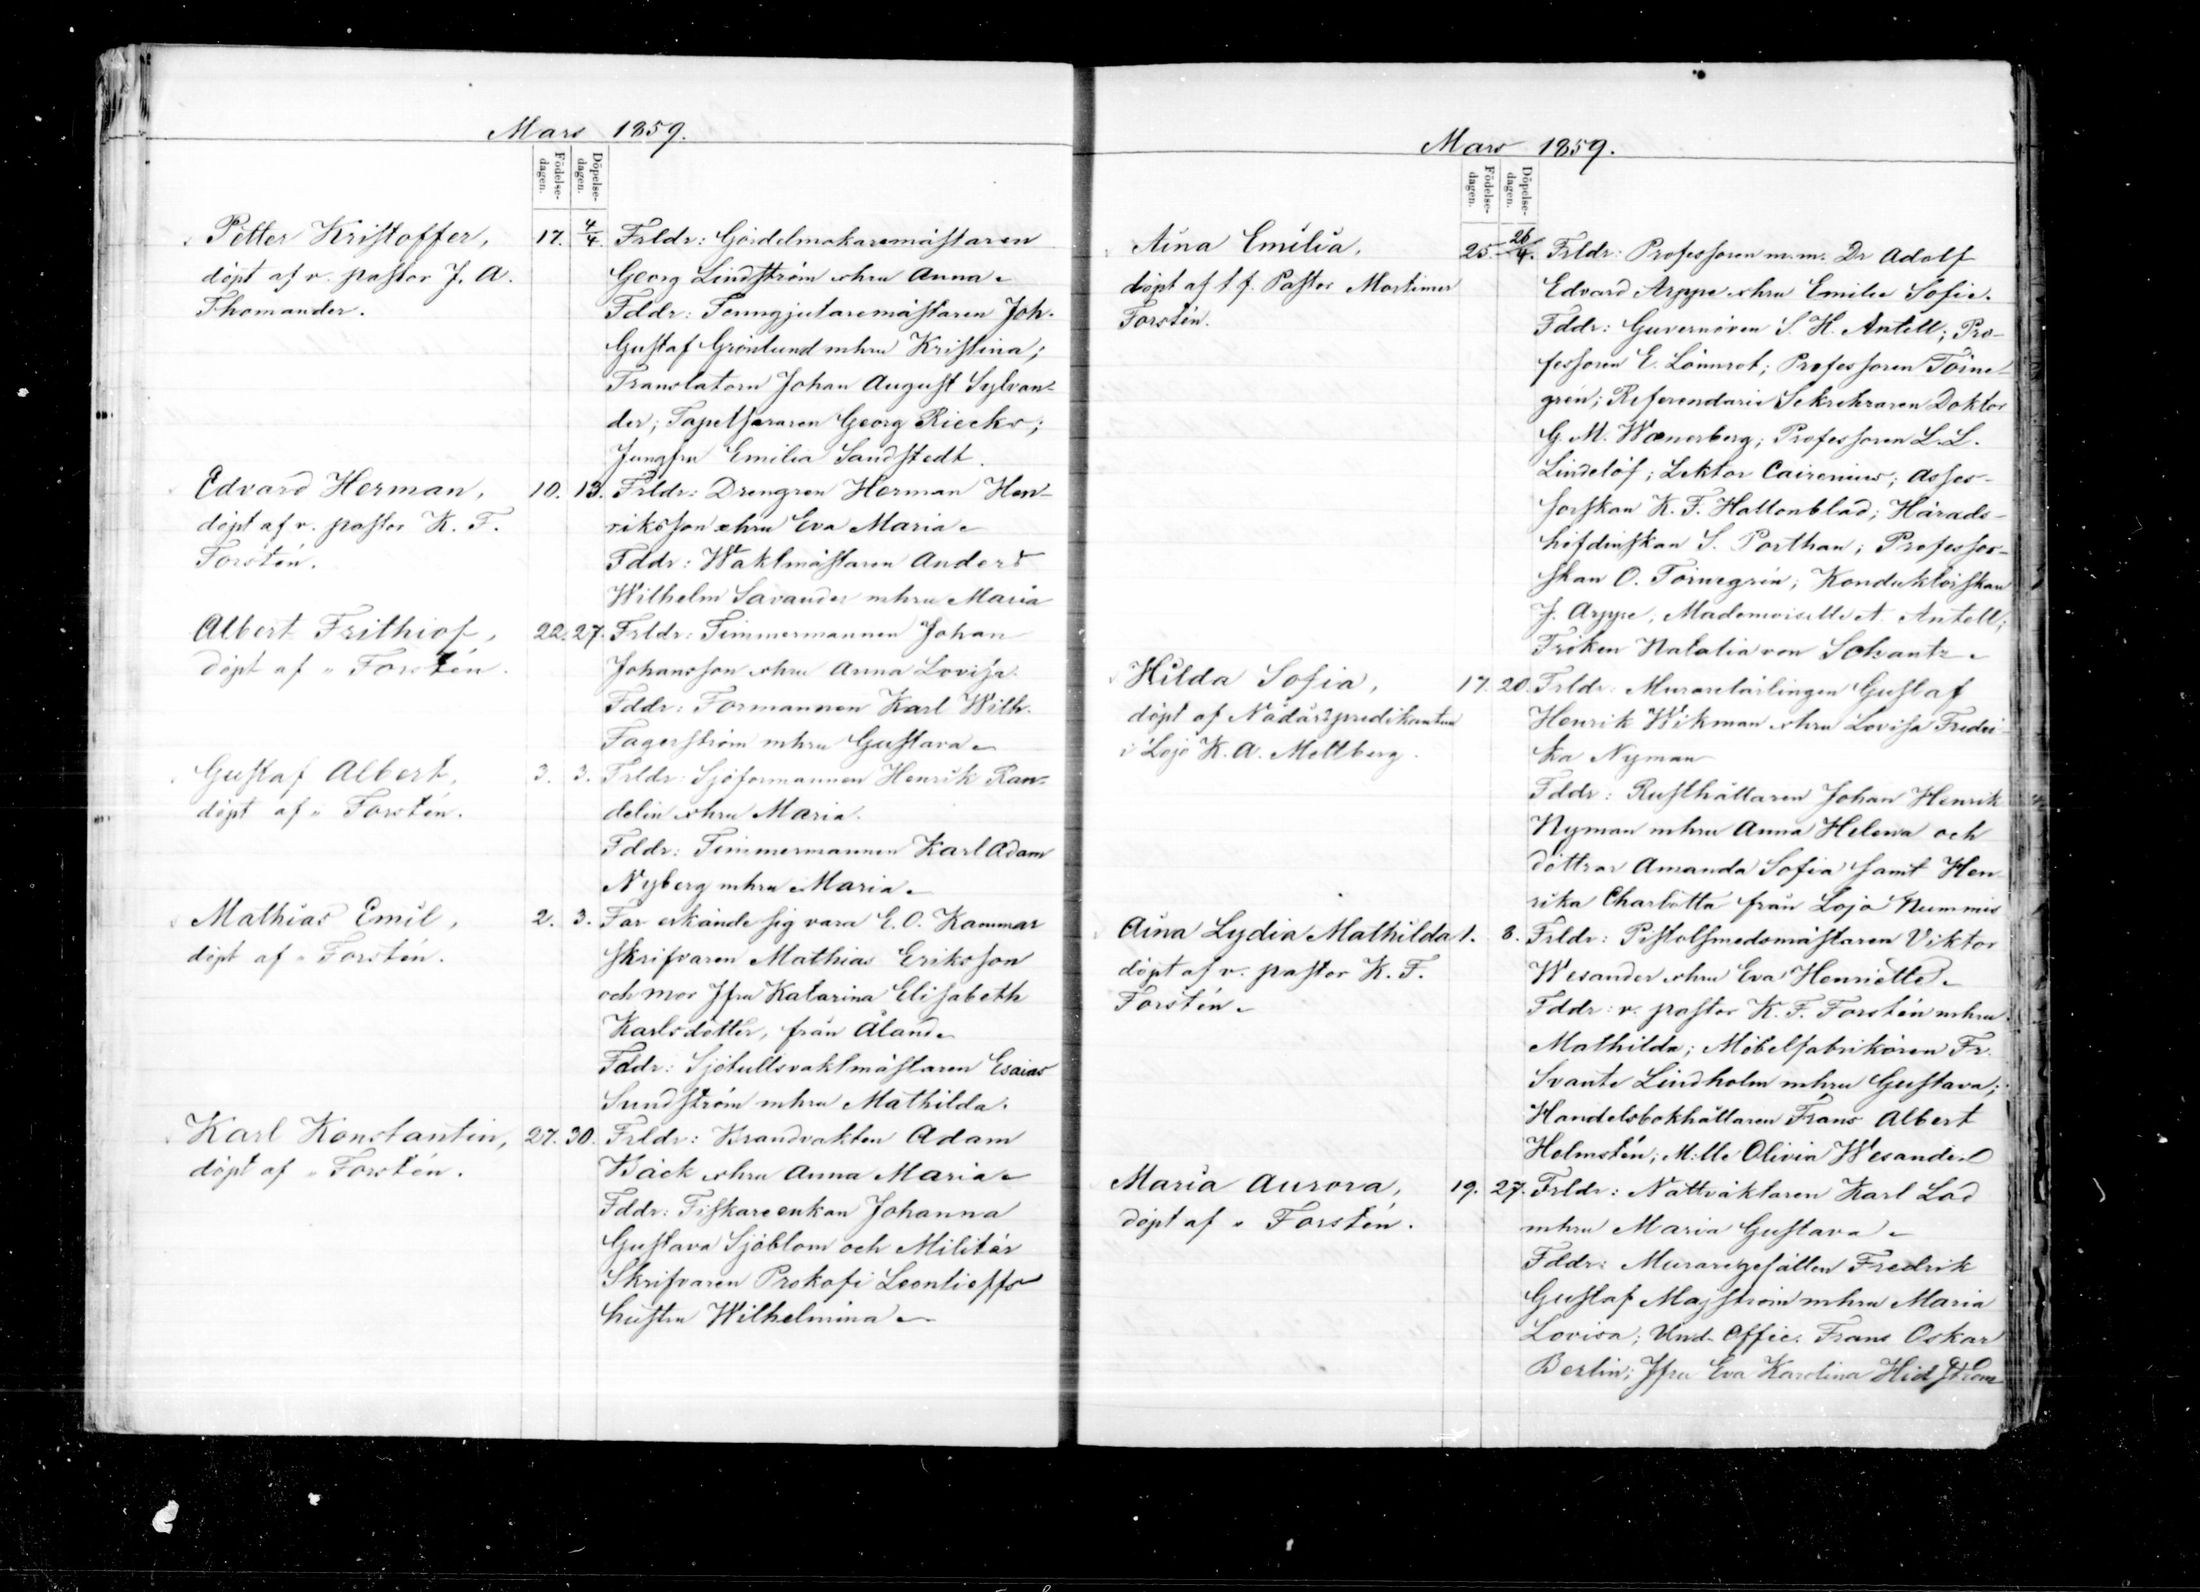 Mars 1859.
Födelse-dagen.
Döpelse-dagen.
Petter Kristoffer,
döpt af v. pastor J. A.
Thomander.
17.
4/4
Frldr: Gördelmakaremästaren
Georg Lindström o hru Anna.
Fddr: Tenngjutaremästaren Joh.
Gustaf Grönlund m hru Kristina;
Translatorn Johan August Sylvan-
der; Tapetseraren Georg Riecks;
Jungfru Emilia Sandstedt.
Edvard Herman,
döpt af v. pastor K. F.
Forstén.
10.
13.
Frldr: Drengren Herman Hen-
riksson o hru Eva Maria.
Fddr: Waktmästaren Anders
Wilhelm Savander m hru Maria
Albert Frithiof,
döpt af " Forstén.
22.
27.
Frldr: Timmermannen Johan
Johansson o hru Anna Lovisa.
Fddr: Formannen Karl Wilh.
Fagerström m hru Gustava.
Gustaf Albert,
döpt af " Forstén.
3.
3.
Frldr: Sjöformannen Henrik Ran-
delin o hru Maria.
Fddr: Timmermannen Karl Adam
Nyberg m hru Maria.
Mathias Emil,
döpt af " Forstén.
2.
3.
Far erkände sig vara E. O. Kammar
skrifvaren Mathias Eriksson
och mor Jfru Katarina Elisabeth
Karlsdotter, från Åland.
Fddr: Sjötullsvaktmästaren Esaias
Sundström m hru Mathilda.
Karl Konstantin,
döpt af " Forstén.
27.
30.
Frldr: Brandvakten Adam
Bäck o hru Anna Maria.
Fddr: Fiskareenkan Johanna
Gustava Sjöblom och Militär
Skrifvaren Prokofi Leontieffs
hustru Wilhelmina.
Mars 1859.
Födelse-dagen.
Döpelse-dagen.
Aina Emilia,
döpt af t f. Pastor Mortimer
Forstén.
25.
26/4.
Frldr: Professoren m. m. Dr Adolf
Edvard Arppe o hru Emilie Sofie.
Fddr: Guvernören S. H. Antell; Pro-
fessoren E. Lönnrot; Professoren Törne-
grén; Referendarie Sekreteraren Doktor
G. M. Wænerberg; Professoren L. L.
Lindelöf; Lektor Cairenius; Asses-
sorskan K. F. Hallonblad; Härads-
höfdinskan S. Porthan; Professor-
skan O. Törnegrén; Konduktörskan
J. Arppe, Mademoiselle A. Antell;
Fröken Natalia von Schantz.
Hilda Sofia,
döpt af Nådårspredikanten
i Lojo K. A. Mellberg.
17.
20.
Frldr: Murarelärlingen Gustaf
Henrik Wikman o hru Lovisa Fredri-
ka Nyman
Fddr: Rusthållaren Johan Henrik
Nyman m hru Anna Helena och
döttrar Amanda Sofia samt Hen
rika Charlotta från Lojo Nummis
Aina Lydia Mathilda
döpt af v. pastor K. F.
Forstén.
1.
8.
Frldr: Pistolsmedsmästaren Viktor
Wesander o hru Eva Henriette.
Fddr: v. pastor K. F. Forstén m hru
Mathilda; Möbelfabrikören Fr.
Svante Lindholm m hru Gustava;
Handelsbokhållaren Frans Albert
Holmstén; M:lle Olivia Wesander
Maria Aurora,
döpt af " Forstén.
19.
27.
Frldr: Nattväktaren Karl Löd
m hru Maria Gustava.
Fddr: Murargesällen Fredrik
Gustaf Majström m hru Maria
Lovisa; Und. Offic. Frans Oskar
Berlin; Jfru Eva Karolina Hidström